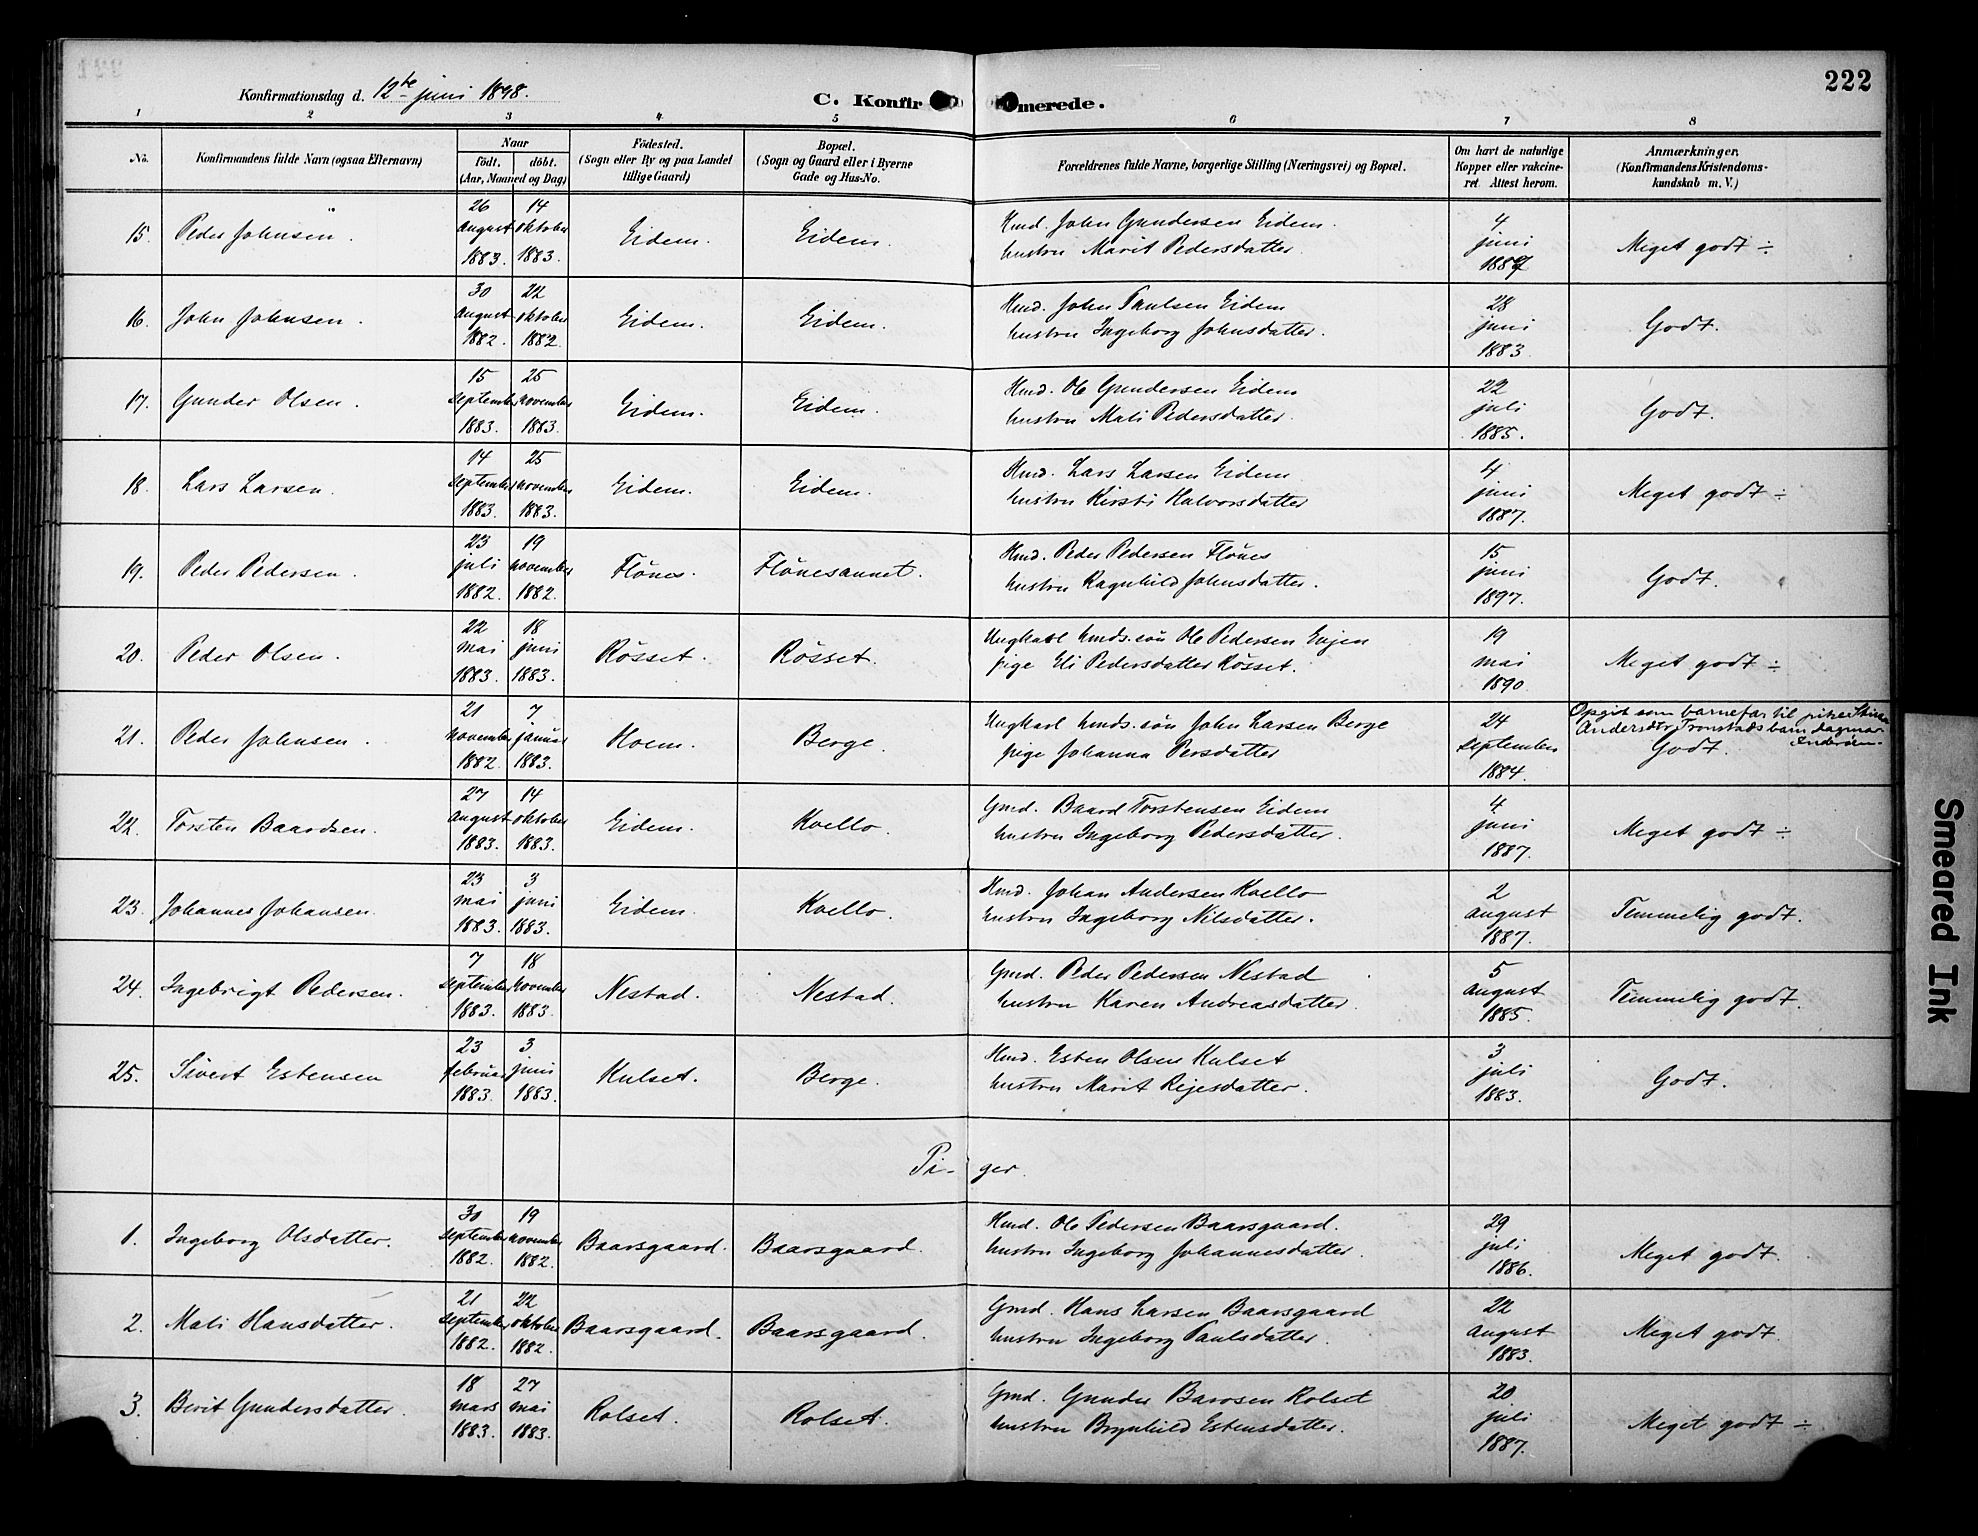 222
Konfirmationsdag d. 12te juni 1898.
C. Konfirmerede.
1 2 3 4 5 6 7 8
No.
Konfirmandens fulde Navn (ogsaa Efternavn)
Naar
födt. döbt.
(Aar, Maaned og Dag)
Födested.
(Sogn eller By og paa Landet
tillige Gaard)
Bopæl.
(Sogn og Gaard eller i Byerne
Gade og Hus-No.
Forældrenes fulde Navne, borgerlige Stilling (Næringsvei) og Bopæl.
Om havt de naturlige
Kopper eller vakcine-
ret. Attest herom.
Anmærkninger.
(Konfirmandens Kristendoms-
kundskab m. V.)
15. Peder Johnsen. 26 august 1883. 14 oktober 1883. Eidem. Eidem. Kmd. John Gundersen Eidem.
hustru Marit Pedersdatter. 4 juni 1887 Meget godt ÷
16. John Johnsen. 30 august 1882. 22 oktober 1882. Eidem. Eidem. Hmd. John Paulsen Eidem
hustru Ingeborg Johnsdatter. 28 juni 1883. Godt.
17. Gunder Olsen. 15 september 1883. 25 november 1883. Eidem. Eidem. Hmd. Ole Gundersen Eidem
hustru Mali Pedersdatter. 22 juli 1885. Godt.
18. Lars Larsen. 14 september 1883. 25 november 1883. Eidem. Eidem. Hmd. Lars Larsen Eidem
hustru Kirsti Halvorsdatter 4 juni 1887. Meget godt ÷
19. Peder Pedersen. 23 juli 1882. 19 november 1882. Flönes. Flönesaunet. Hmd. Peder Pedersen Flönes
hustru Ragnhild Johnsdatter. 15 juni 1897. Godt.
20. Peder Olsen. 22 mai 1883. 18 juni 1883. Rösset. Rösset. Ungkarl hmds. sön Ole Pedersen Evjen
pige Eli Pedersdatter Rösset. 19 mai 1890. Meget godt ÷
21. Peder Johnsen. 21 november 1882. 7 januar 1883. Hoem. Berge. Ungkarl hmds. sön John Larsen Berge
pige Johanna Persdatter 24 september 1884. Opgit som barnefar til piken
Andersdtr Tronstads barn dagmar
Inderöen.
Godt.
22. Torsten Baardsen. 27 august 1883. 14 oktober 1883. Eidem. Kvello. Gmd. Baard Torstensen Eidem
hustru Ingeborg Pedersdatter. 4 juni 1887. Meget godt ÷
23. Johannes Johansen. 23 mai 1883. 3 juni 1883. Eidem. Kvello. Hmd. Johan Andersen Kvello
hustru Ingeborg Nilsdatter. 2 august 1887. Temmelig godt.
24. Ingebrigt Pedersen. 7 september 1883. 18 november 1883. Nestad. Nestad. Gmd. Peder Pedersen Nestad
hustru Karen Andreasdatter. 5 august 1885. Temmelig godt.
25. Sivert Estensen 23 februar 1883. 3 juni 1883. Kulset. Berge. Hmd. Esten Olsen Kulset
hustru Marit Rejesdatter. 3 juli 1883. Godt.
Pi- ger.
1. Ingeborg Olsdatter. 30 september 1882. 19 november 1882. Baarsgaard. Baarsgaard. Hmd. Ole Pedersen Baarsgaard.
hustru Ingeborg Johannesdatter. 29 juli 1886. Meget godt
2. Mali Hansdatter. 21 september 1882. 22 oktober 1882. Baarsgaard. Baarsgaard. Gmd. Hans Larsen Baarsgaard
hustru Ingeborg Paulsdatter. 22 august 1883. Meget godt
3. Berit Gundersdatter. 18 mars 1883. 27 mai 1883. Rolset. Rolset. Gmd. Gunder Barosen Rolset
hustru Brynhild Estensdatter. 20 juli 1887. Meget godt ÷
Smeared Ink